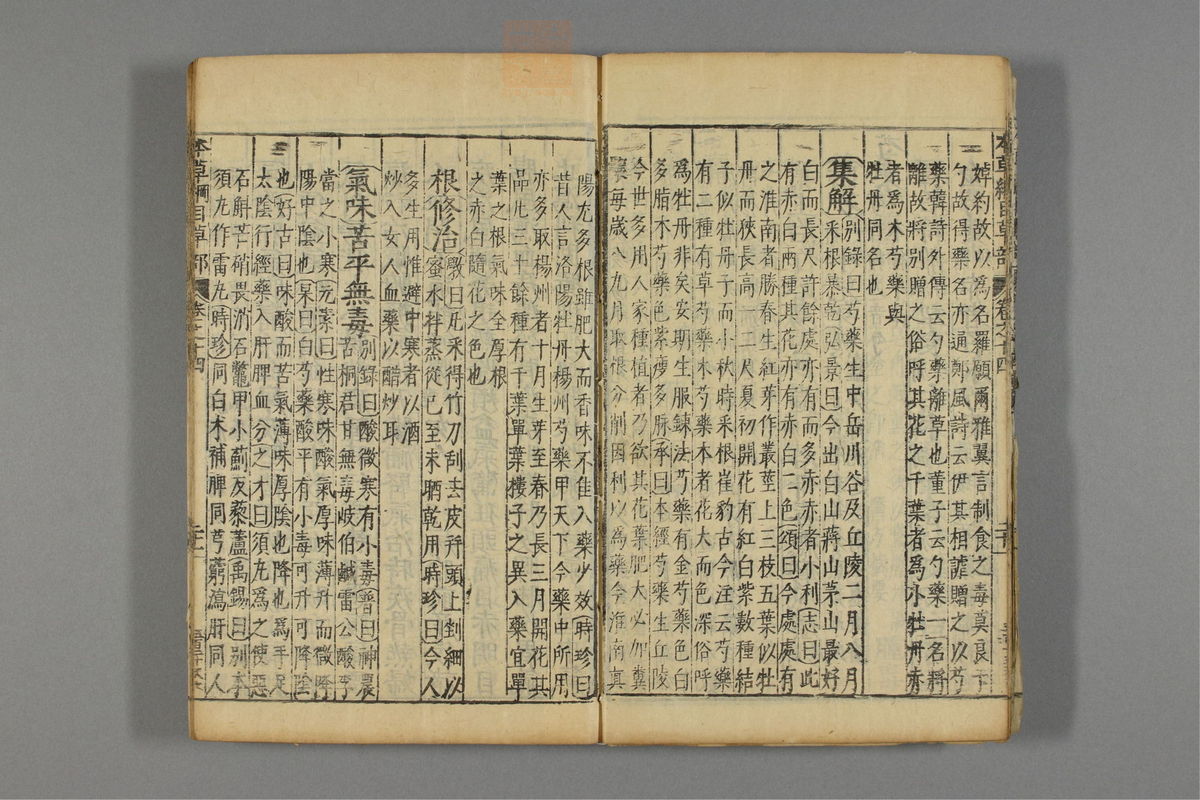 綽約故以爲名羅願爾雅翼言制食之毒莫良于
勺故得藥名亦通鄭風詩云伊其相謔贈之以芍
藥韓詩外傳云勺藥離草也董子云勺藥一名將
離故將別贈之俗呼其花之千葉者爲小牡丹赤
者爲木芍藥與
牡丹同名也
集解別錄曰芍藥生中岳川谷及丘陵二月八月
采根暴乾弘景曰今出白山蔣山茅山最好
白而長尺許餘處亦有而多赤赤者小利志曰此
有赤白兩種其花亦有赤白二色頌曰今處處有
之淮南者勝春生紅芽作叢莖上三枝五葉似牡
丹而狹長高一二尺夏初開花有紅白紫數種結
子似牡丹子而小秋時采根崔豹古今注云芍藥
有二種有草芍藥木芍藥木者花大而色深俗呼
爲牡丹非矣安期生服鍊法芍藥有金芍藥色白
多脂木芍藥色紫瘦多脉承曰本經芍藥生丘陵
今世多用人家種植者乃欲其花葉肥大必加糞
壤每歲八九月取根分削因利以爲藥今淮南真
陽尤多根雖肥大而香味不佳入藥少效時珍曰
昔人言洛陽牡丹楊州芍藥甲天下今藥中所用
亦多取楊州者十月生芽至春乃長三月開花其
品凡三十餘種有千葉單葉樓子之異入藥宜單
葉之根氣味全厚根
之赤白隨花之色也
根修治斆曰凡采得竹刀刮去皮并頭上剉細以
蜜水拌蒸從巳至未晒乾用時珍曰今人
多生用惟避中寒者以酒
炒入女人血藥以醋炒耳
氣味苦平無毒別錄曰酸微寒有小毒普曰神農
苦桐君甘無毒岐伯鹹雷公酸李
當之小寒元素曰性寒味酸氣厚味薄升而微降
陽中陰也杲曰白芍藥酸平有小毒可升可降陰
也好古曰味酸而苦氣薄味厚陰也降也爲手足
太陰行經藥入肝脾血分之才曰須丸爲之使惡
石斛芒硝畏消石鼈甲小薊反藜蘆禹錫曰別本
須丸作雷丸時珍同白术補脾同芎藭瀉肝同人
本草綱目草部
卷之十四